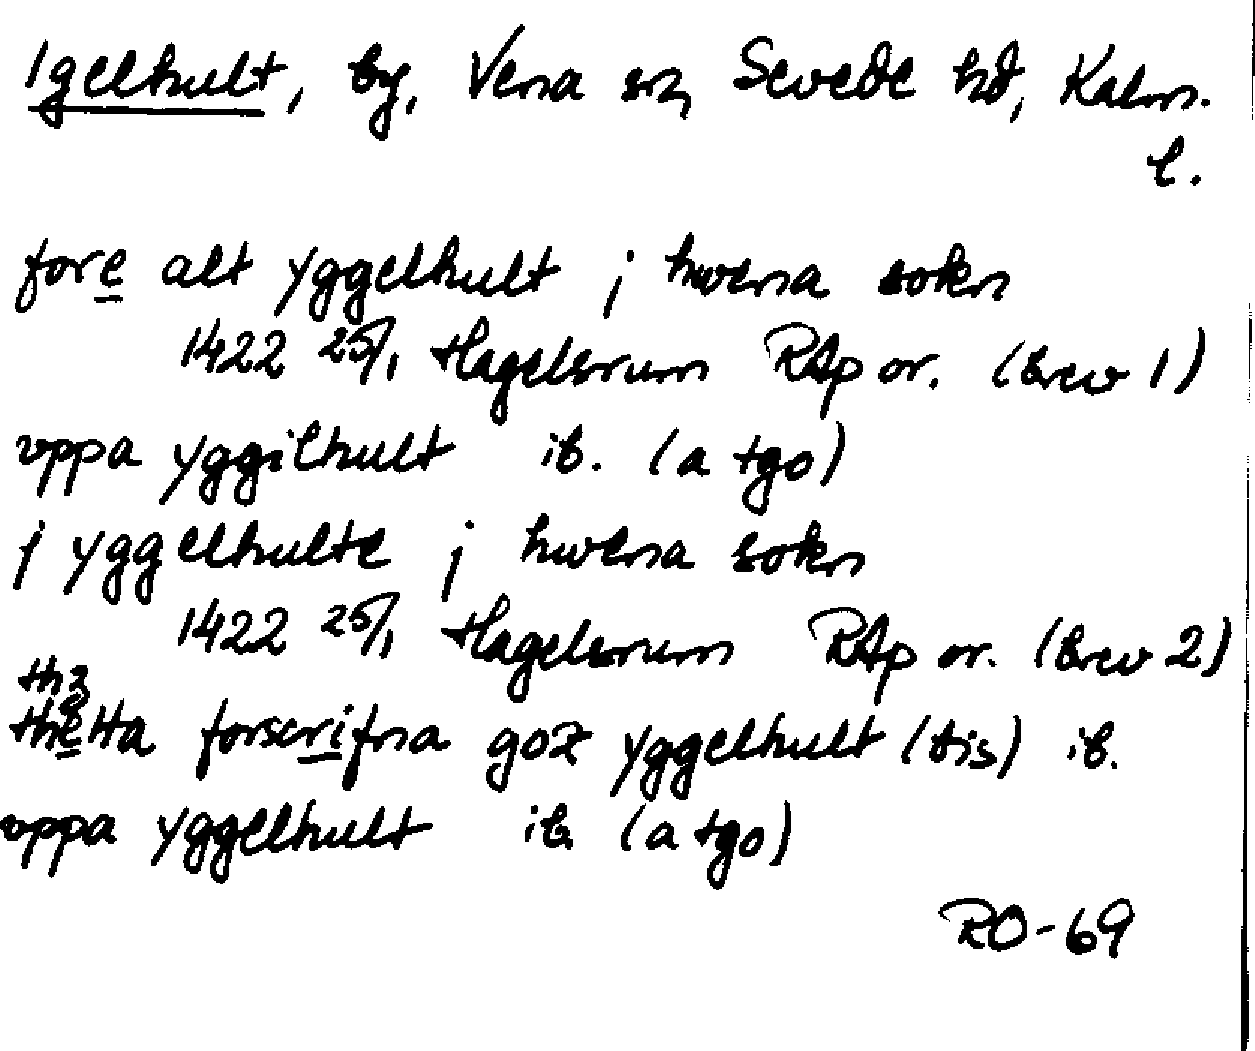 Igelhult, by, Vena sn, Sevede hd, Kalm.
l.
fore alt yggelhult j hwena sokn
1422 25/1 Hagelsrum RAp or. (brev 1)
vppa yggilhult ib. (a tgo)
j yggelhulte j hwena sokn
1422 25/1 Hagelsrum RAp or. (brev 2)
thz
thetta forscrifna goz yggelhult (bis) ib.
vppa yggelhult ib. (a tgo)
RO-69